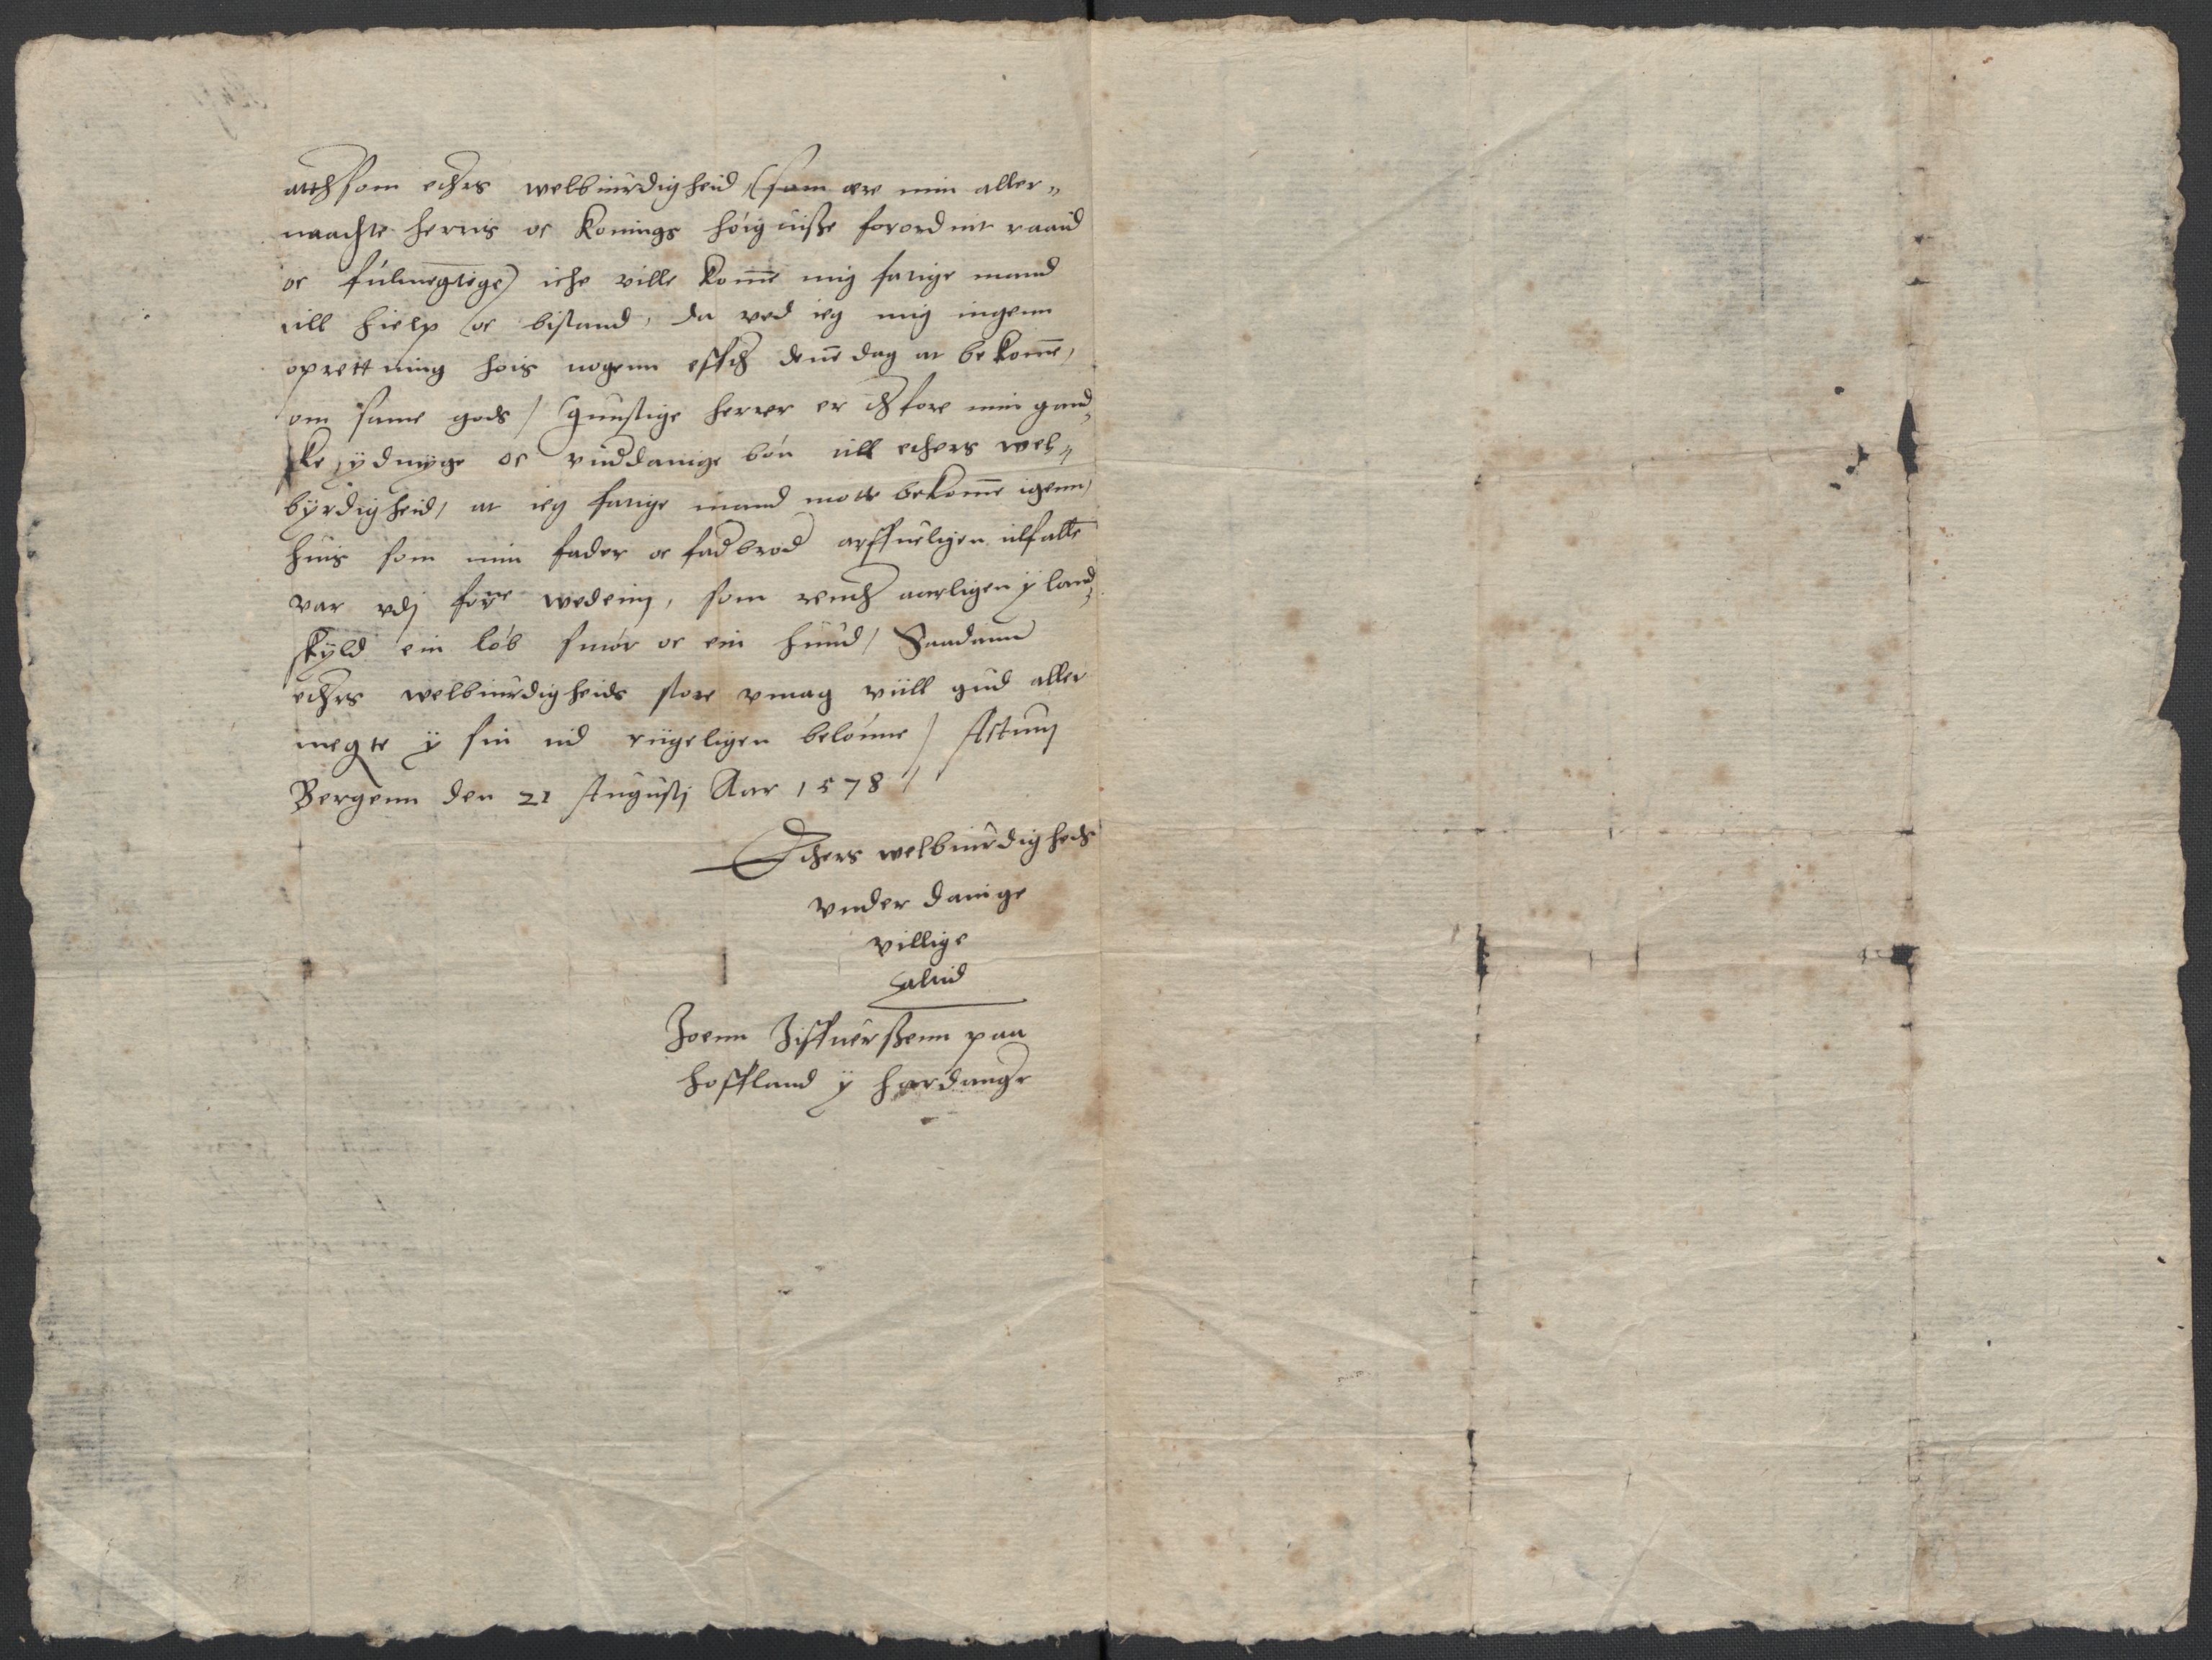 atth som echers welbiurdigheid, (som ere min aller„
naadste herris oc Konings høig uisße forordnit raaid
oc fulmegtige) iche ville kom̅e mig fatige mand
till hielp oc bistand, da ved ieg mig ingenn
oprettning hois nogenn effther den̅e dag at bekom̅e,
om same gods / Gunstige herrer er therfore min gand„
ske ydmyge oc vnddanige bøn till echers wel„
byrdigheid, at ieg fatige mand motte bekom̅e igenn,
huis som min fader oc fadbrod arffueligen tilfalt
var vdj forne wedeim, som renther aarligen ÿ land„
skÿld ein løb smør oc ein huud, Saadann
echers welbiurdigheids store vmag viill gud aller
megte ÿ sin tid riigeligen beløune / Actum
Bergenn den 21 Augustj Aar 1578 //
Echers welbiurdigheds
vnder danige
villige
altid
Joenn Jiffuersßenn paa
Hoffland ÿ Hardanger